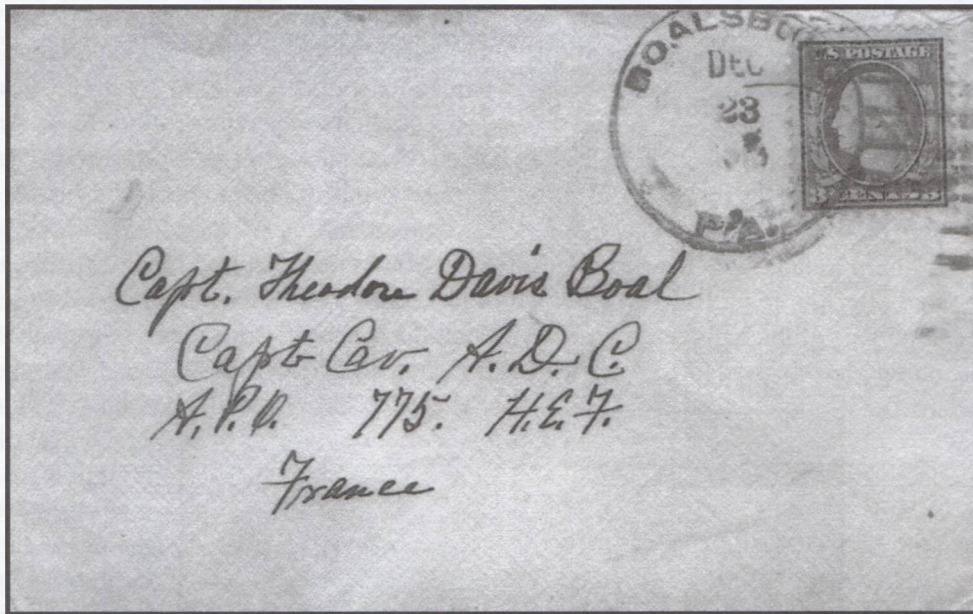 BOALSBURG
DEC
23
PA.
U.S. POSTAGE
3 CENTS 3
Capt. Theodore Davis Boal
Capt Cav. A.D.C.
A.P.O. 775. A.E.F.
France